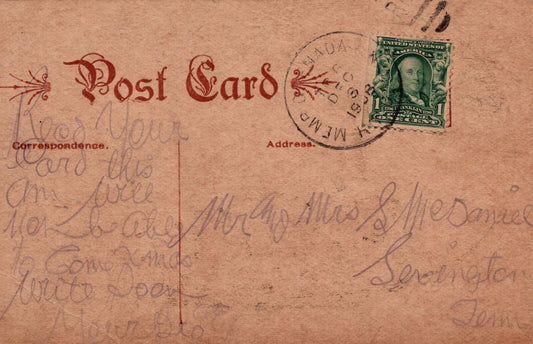 Post Card
Correspondence.
Address.
UNITED STATES OF AMERICA
1
FRANKLIN
1
POSTAGE
ONE CENT
Your
Card this
Am will
not be Able
to Come Xmas
Write Soon
Your
Mr and Mrs S McDaniel
Tenn